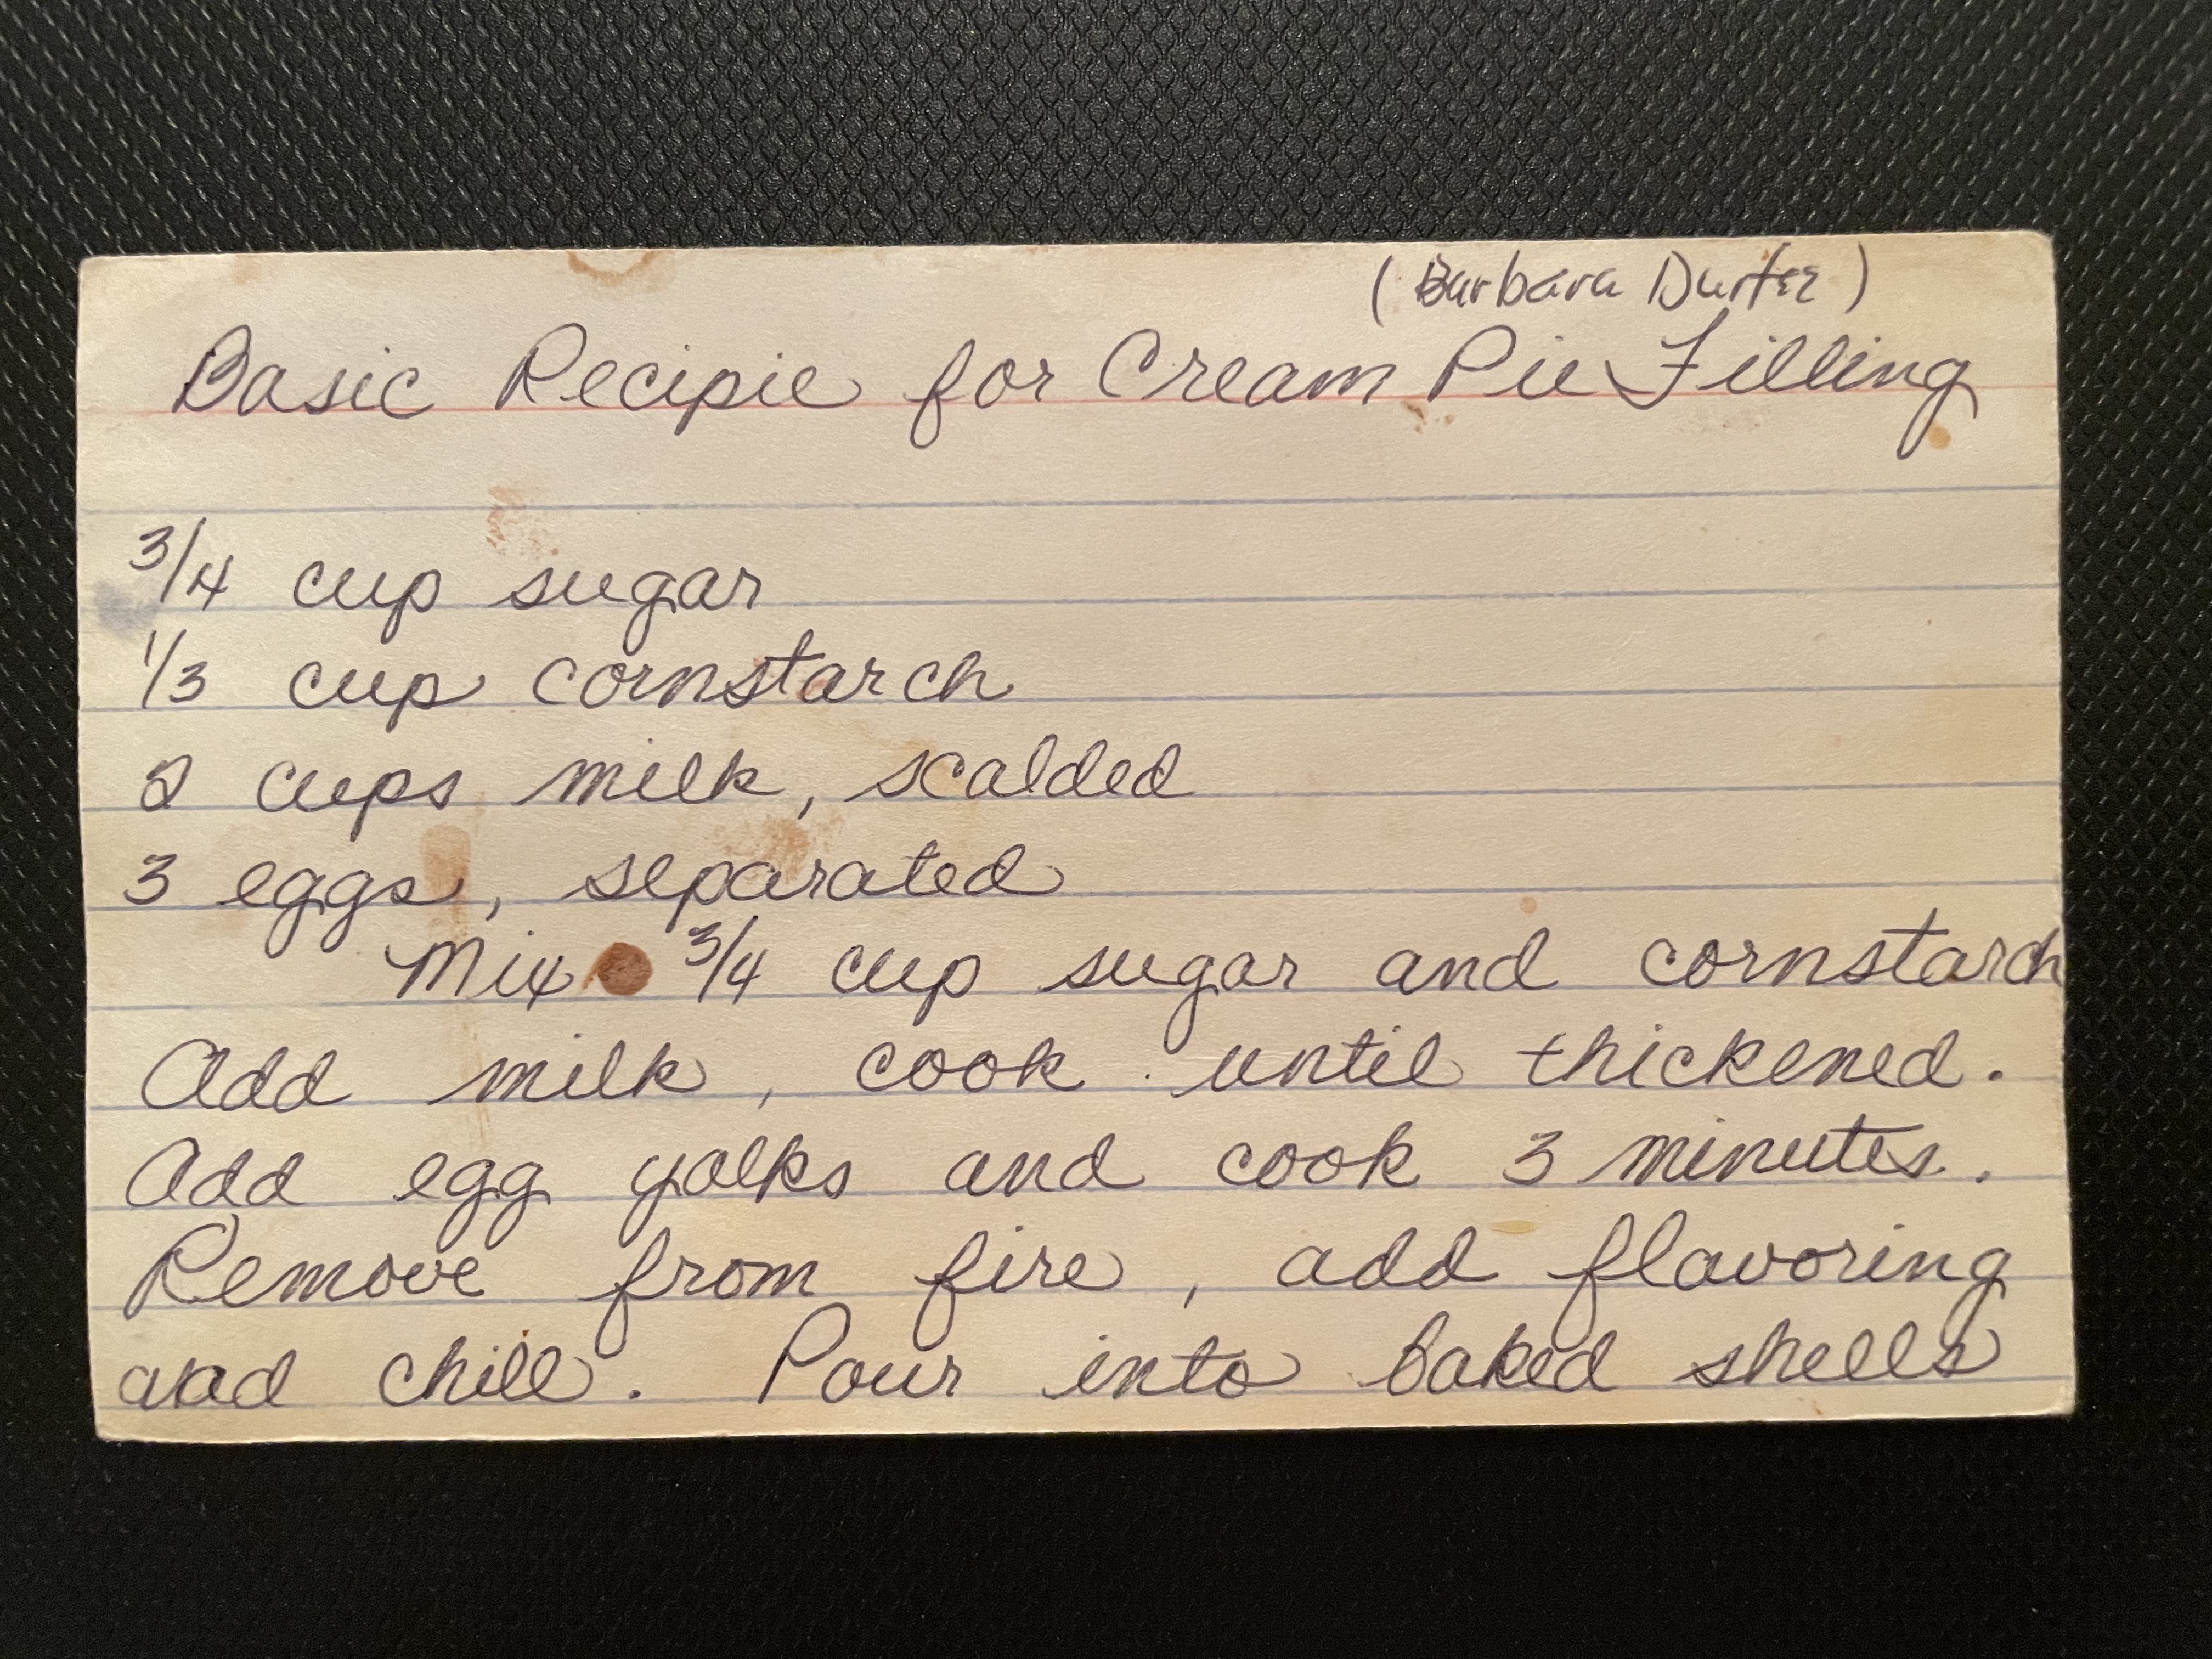 (Barbara
Basic Recipie for Cream Pie Filling
3/4 cup sugar
1/3 cup cornstarch
2 cups milk, scalded
3 eggs, separated
Mix 3/4 cup sugar and cornstarch
Add milk, cook until thickened.
Add egg yolks and cook 3 minutes.
Remove from fire, add flavoring
and chill. Pour into baked shells